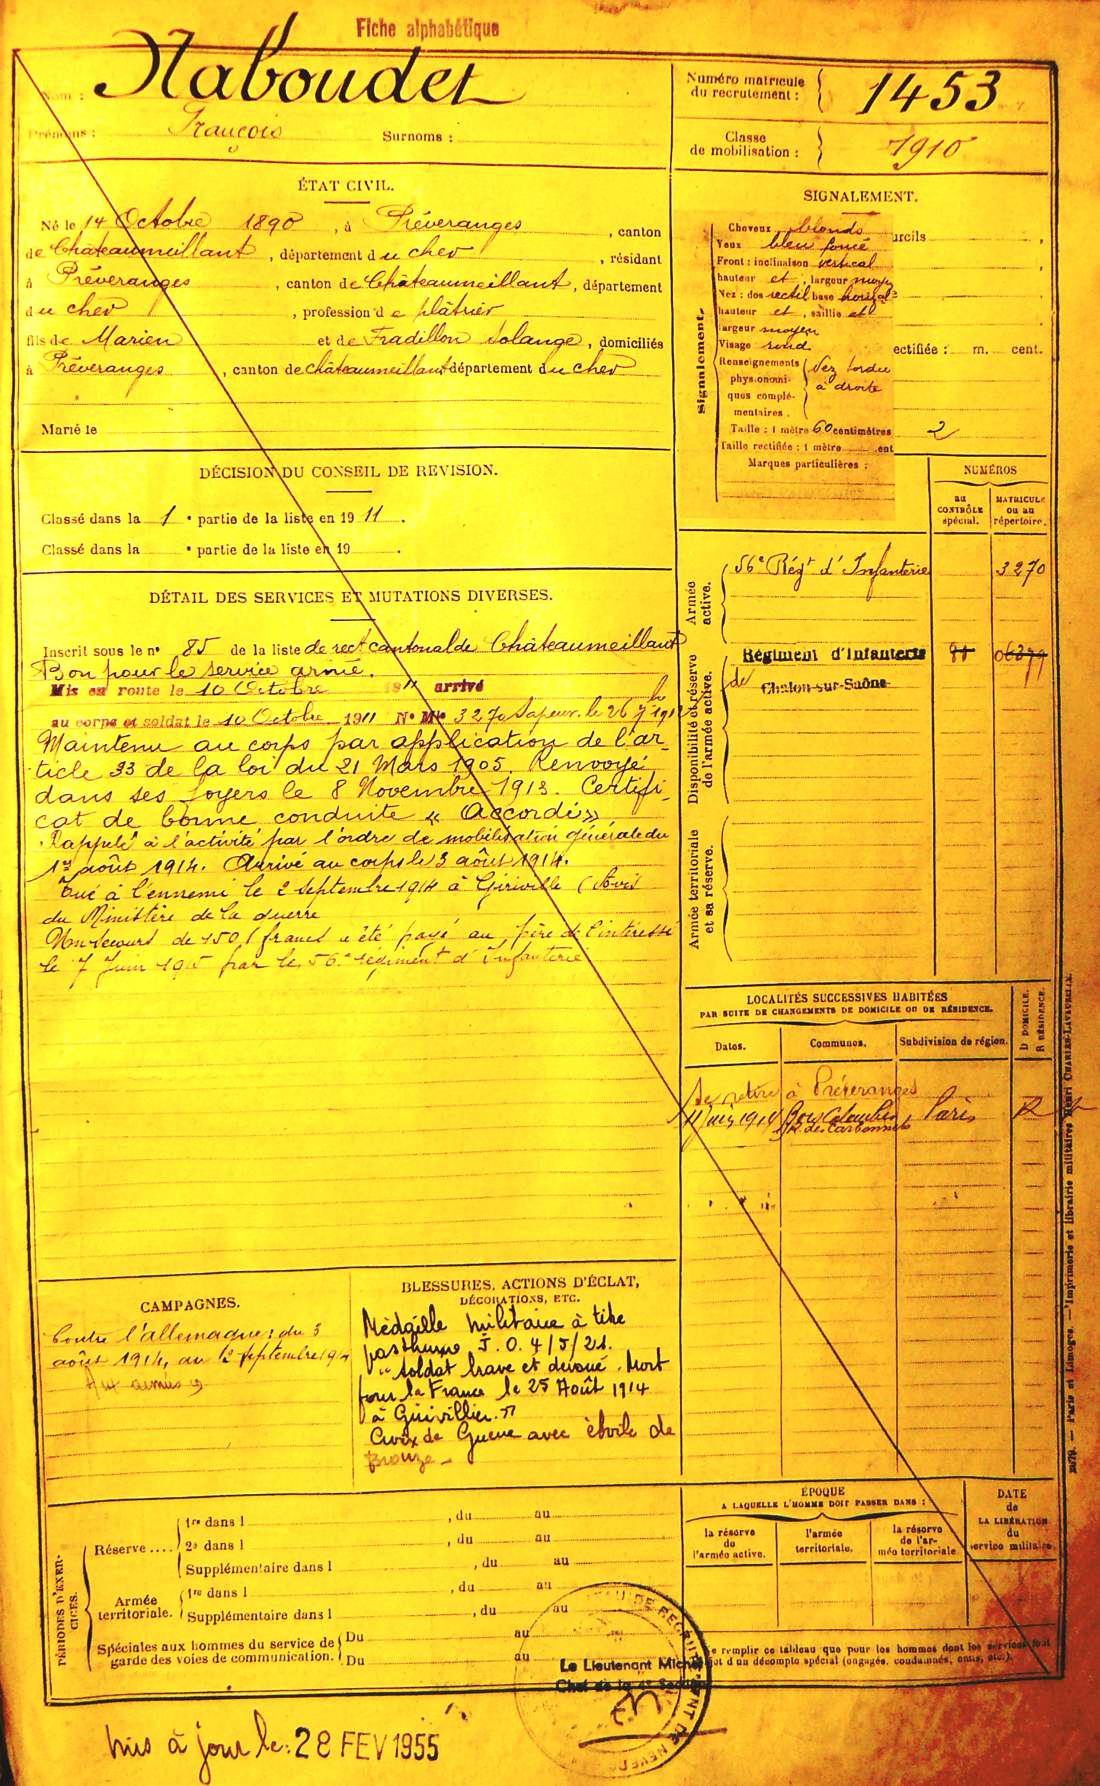 Fiche alphabétique
Nom : Naboudet
Prénoms : François Surnoms :
Numéro matricule du recrutement : 1453
Classe de mobilisation : 1910
ÉTAT CIVIL.
Né le 14 Octobre 1890, à Préveranges, canton
de Châteaumeillant, département du cher, résidant
à Préveranges, canton de Châteaumeillant, département
du cher, profession de plâtrier
fils de Marien et de Fradillon Solange, domiciliés
à Préveranges, canton de châteaumeillant département du cher
Marié le
SIGNALEMENT.
Signalement.
Cheveux blonds
Yeux bleu foncé
Front : inclinaison vertical
hauteur et, largeur moy
Nez : dos rectil base horizle
hauteur et, saillie et
largeur moyen
Visage rond
Renseignements physionomiques complémentaires. Nez tordu à droite
Taille : 1 mètre 60 centimètres
Taille rectifiée : 1 mètre cent
Marques particulières :
urcils
ectifiée : m. cent.
2
DÉCISION DU CONSEIL DE REVISION.
Classé dans la 1 e partie de la liste en 1911.
Classé dans la e partie de la liste en 19 .
NUMÉROS
au CONTRÔLE spécial.
MATRICULE ou au répertoire.
Armée active.
56e Régt d'Infanterie 3270
Disponibilité et réserve de l'armée active.
Régiment d'Infanterie
de Chalon-sur-Saône
Armée territoriale et sa réserve.
DÉTAIL DES SERVICES ET MUTATIONS DIVERSES.
Inscrit sous le n° 85 de la liste de rect cantonal de Châteaumeillant
Bon pour le service armé.
Mis en route le 10 Octobre 1911 arrivé
au corps et soldat le 10 Octobre 1911 N° Mle 3270 Sapeur le 26 7bre 1912
Maintenu au corps par application de l'ar-
ticle 33 de la loi du 21 Mars 1905. Renvoyé
dans ses foyers le 8 Novembre 1913. Certifi-
cat de bonne conduite « Accordé »
Rappelé à l'activité par l'ordre de mobilisation générale du
1er août 1914. Arrivé au corps le 3 août 1914.
Tué à l'ennemi le 2 septembre 1914 à Giriville (Avis
du Ministère de la guerre
Un secours de 150 francs a été payé au père de l'intéressé
le 7 Juin 1915 par le 56e régiment d'Infanterie
LOCALITÉS SUCCESSIVES HABITÉES
PAR SUITE DE CHANGEMENTS DE DOMICILE OU DE RÉSIDENCE.
Dates. Communes. Subdivision de région. D DOMICILE. R RÉSIDENCE.
Se retire à Préveranges
1914 Bois Colombes Paris R
CAMPAGNES.
Contre l'allemagne : du 3
août 1914, au 2 septembre 1914
Aux armées
BLESSURES, ACTIONS D'ÉCLAT,
DÉCORATIONS, ETC.
Médaille militaire à titre
posthume J.O. 4/5/21.
"Soldat brave et dévoué. Mort
pour la France le 25 Août 1914
à Girivillier."
Croix de Guerre avec étoile de
Bronze -
PÉRIODES D'EXERCICES.
Réserve .... 1re dans l , du au
2e dans l , du au
Supplémentaire dans l , du au
Armée territoriale. 1re dans l , du au
Supplémentaire dans l , du au
Spéciales aux hommes du service de garde des voies de communication. Du au
Du au
ÉPOQUE
A LAQUELLE L'HOMME DOIT PASSER DANS :
la réserve de l'armée active.
l'armée territoriale.
la réserve de l'armée territoriale.
DATE de LA LIBÉRATION du service militaire.
e remplir ce tableau que pour les hommes dont les services font
jet d'un décompte spécial (engagés, condamnés, omis, etc.).
Le Lieutenant Michel
Chef de la 4e Section
Imprimerie et librairie militaires Henri CHARLES-LAVAUZELLE.
Paris et Limoges.
mis à jour le : 28 FEV 1955